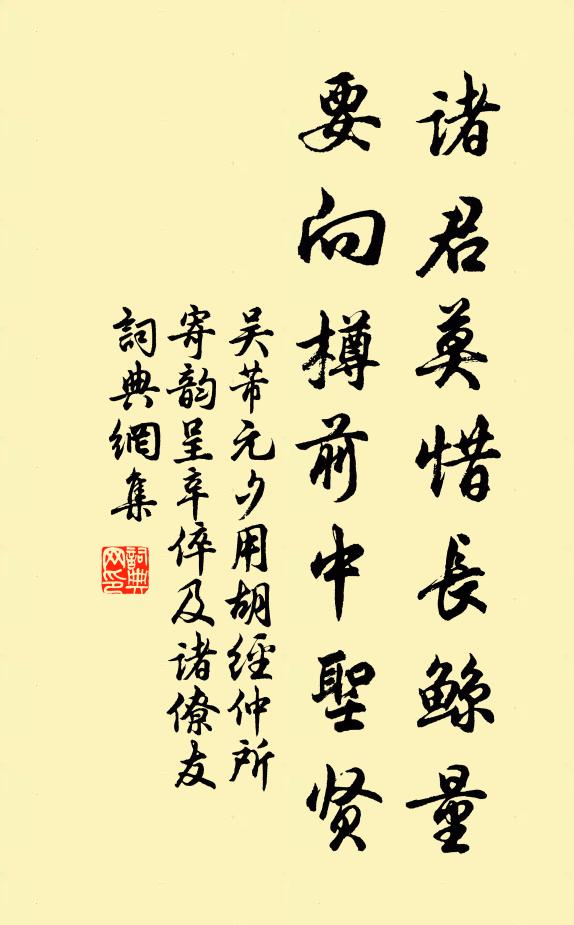 诸君莫惜長鲸量
要向樽前中聖贤
吴芾元夕用胡經仲所
寄韵呈辛倅及诸僚友
詞典網集
詞典
网印